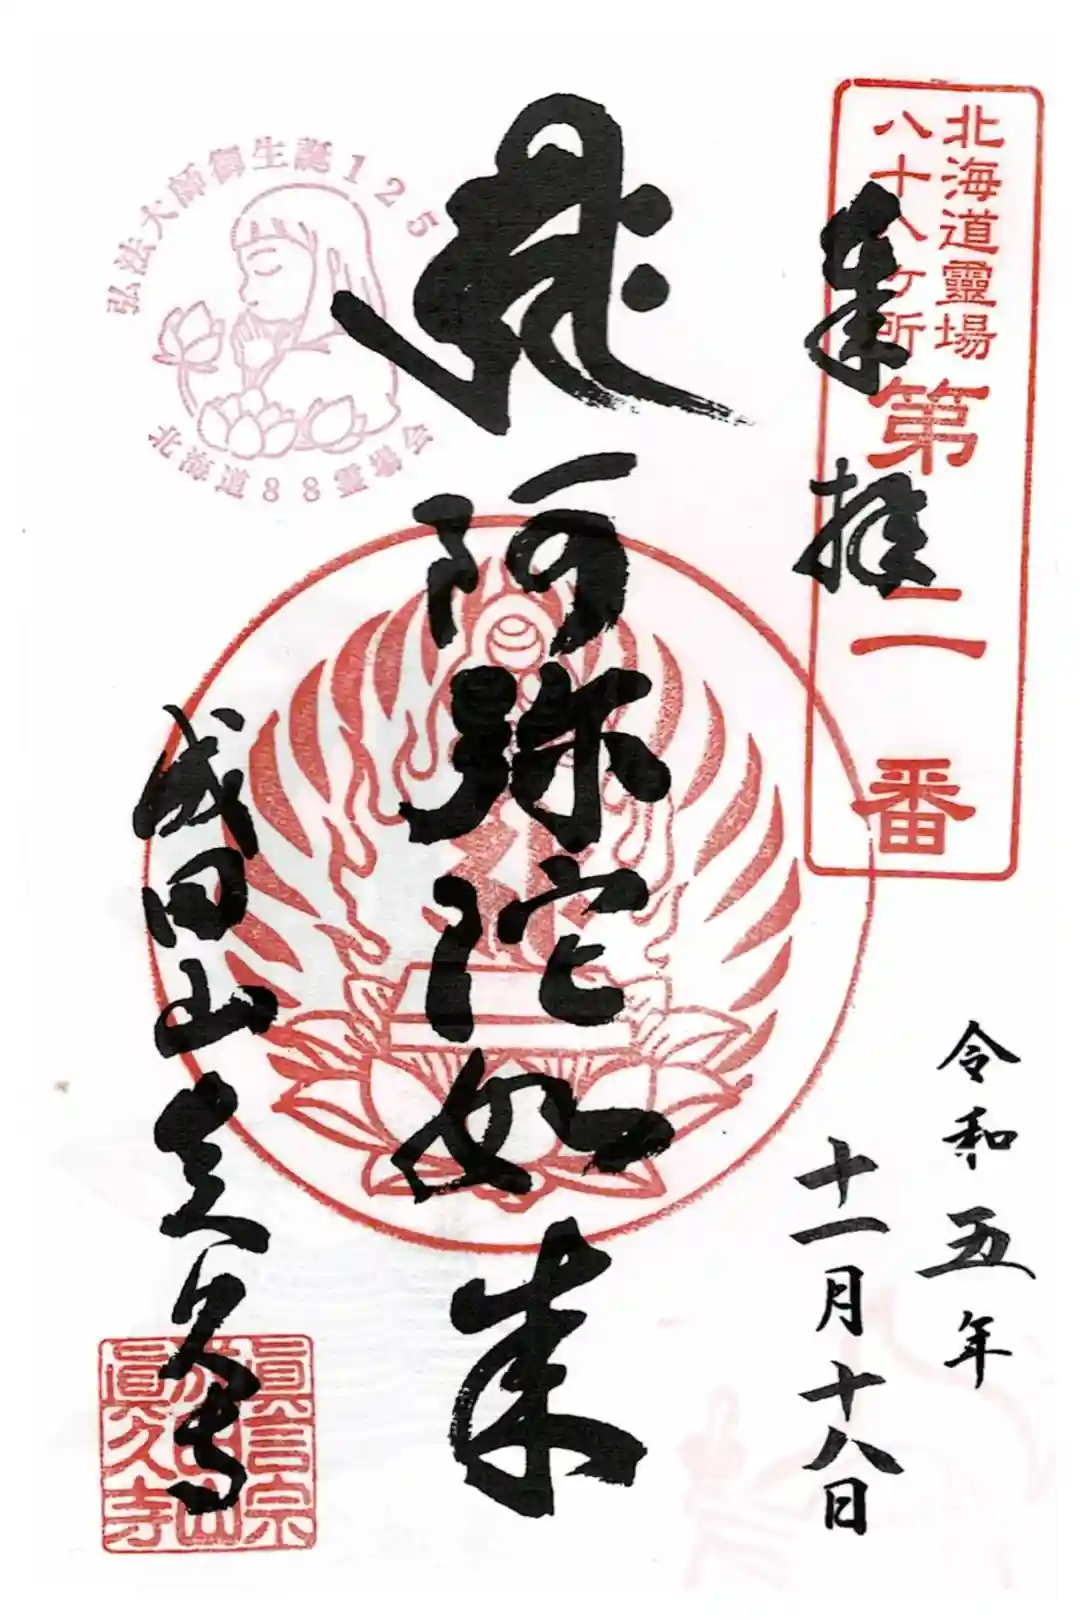 北海道靈場
八十八ヶ所
第二番
奉拝
令和五年
十一月十八日
阿弥陀如来
弘法大師御生誕125
北海道88霊場会
成田山真久寺
眞言宗
成田山
眞久寺